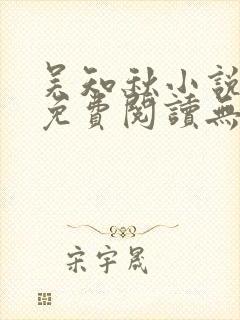 吴知秋小說
免費閱讀無
宋宇晟